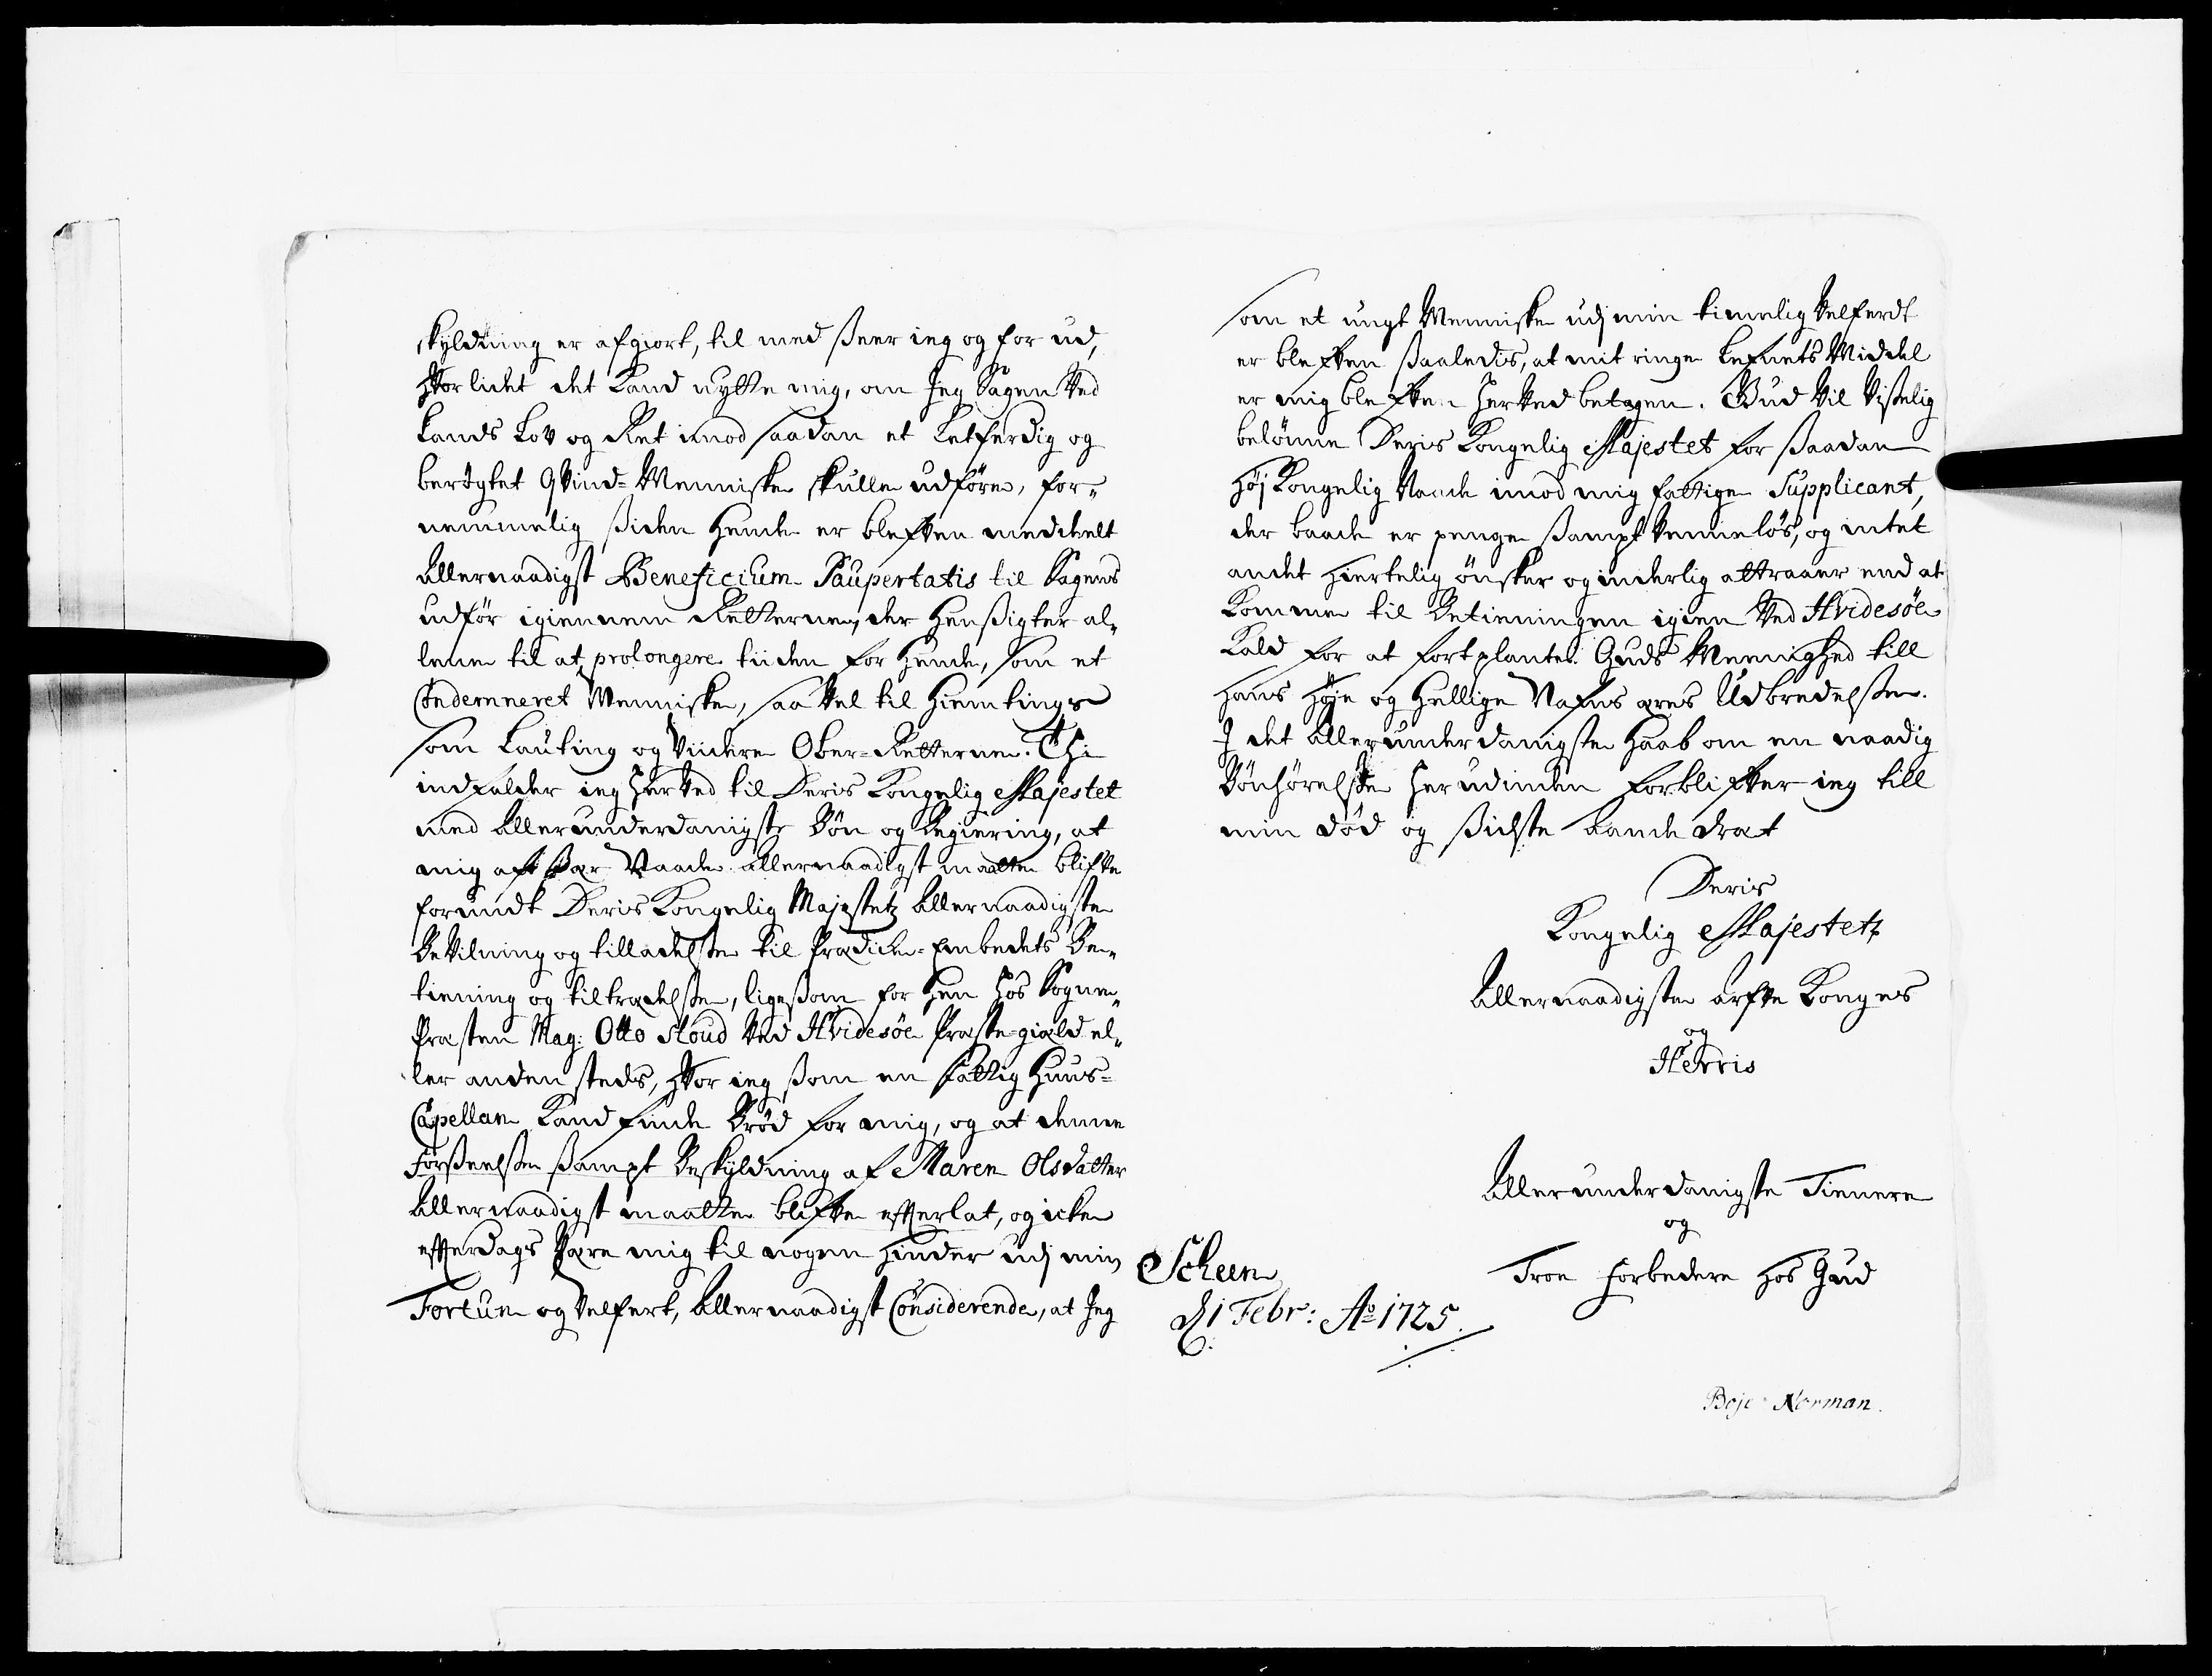 skyldning er afgiort, til med ßeer ieg og for ud,
hvor lidet det Kand nytte mig, om Jeg Sagen Ved
Lands Lov og Ret imod saadan et Letferdig og
berögtet QVind-Menniske skulle udföre, for-
nemmelig ßiden Hende er blefven meddeelt
Allernaadigst Beneficium Paupertatis til Sagens
udför igiennem Retterne, der Henßigter al-
lene til at prolongere tiiden for Hende, som et
Condemneret Menniske, saa vel til Hiemtinge
som Lauting og Viidere Ober-Retterne. Thi
indfalder ieg herved til Deris Kongelig Majestet
med Allerunderdanigste Bön og Begiering, at
mig af ßær Naade allernaadigst maatte blifve
forundt Deris Kongelig Majestetz Allernaadigste
Bevilning og tilladelße til Prædicke-Embedets Be-
tiening og tiltrædelße, ligeßom for hen hos Sogne-
Præsten Mag: Otto Stoud Ved Hvidesöe Præste-gield el-
ler anden steds, hvor ieg ßom en fattig Huus-
Capellan Kand finde Bröd for mig, og at denne
Forßeelße ßampt Beskyldning af Maren Olsdatter
Allernaadigst maatte blifve efterlat, og icke
efterdags være mig til nogen Hinder udj min
Fortun og Velfert, Allernaadigst Considerende, at Jeg
som et ungt Menniske udj min timelig Velferdt
er blefven ßaaledis, at mit ringe Lefnets Middel
er mig blefven herved betagen. Gud Vil Visselig
belönne Deris Kongelig Majestet for ßaadan
Höj Kongelig Naade imod mig fattige Supplicant,
der baade er penge ßampt Venneløs, og intet
andet Hiertelig ønsker og inderlig attraaer end at
Komme til Betieningen igien Ved Hvidesöe
Kald for at fortplante Guds Meenighed till
Hans Höje og Hellige Nafns æres Udbredelße.
I det Allerunderdanigste Haab om en naadig
Bönhörelße herudinden forblifver ieg till
min død og ßidste aande dræt
Deris
Kongelig Majestetz
Allernaadigste arfve Konges
og
Herris
Allerunderdanigste Tiennere
og
Troe forbedere hos Gud
Scheen
d 1 Febr: Ao 1725.
Boje Norman.